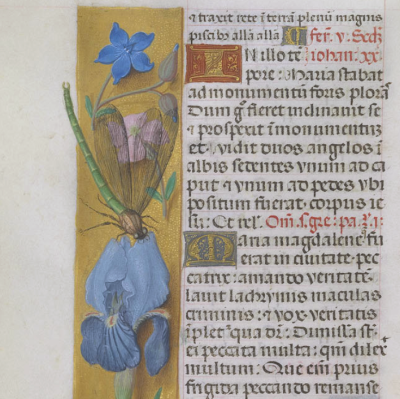 ⁊ traxit rete ī terrā plenū magnis
piscib⁹ alľa alľa ℟ fer̄. v. Secd̄
IN illo tē Iohan. xx.
pore: Maria stabat
ad monumentū foris plorā
Dum g̊ fleret inclinauit se
⁊ prospexit ī monumentū
et vidit duos angelos ī
albis sedentes vnum ad ca
put ⁊ vnum ad pedes vbi
positum fuerat corpus ie
su: Et rel̄. Om̄.
Maria magdalene fu
erat in ciuitate pec
catrix: amando veritatē
lauit lachrymis maculas
criminis: ⁊ vox veritatis
īplet̄ qua dr̄: Dimissa st̄
ei peccata multa: qm̄ dilex̄
multum: Que em̄ prius
frigida peccando remanse